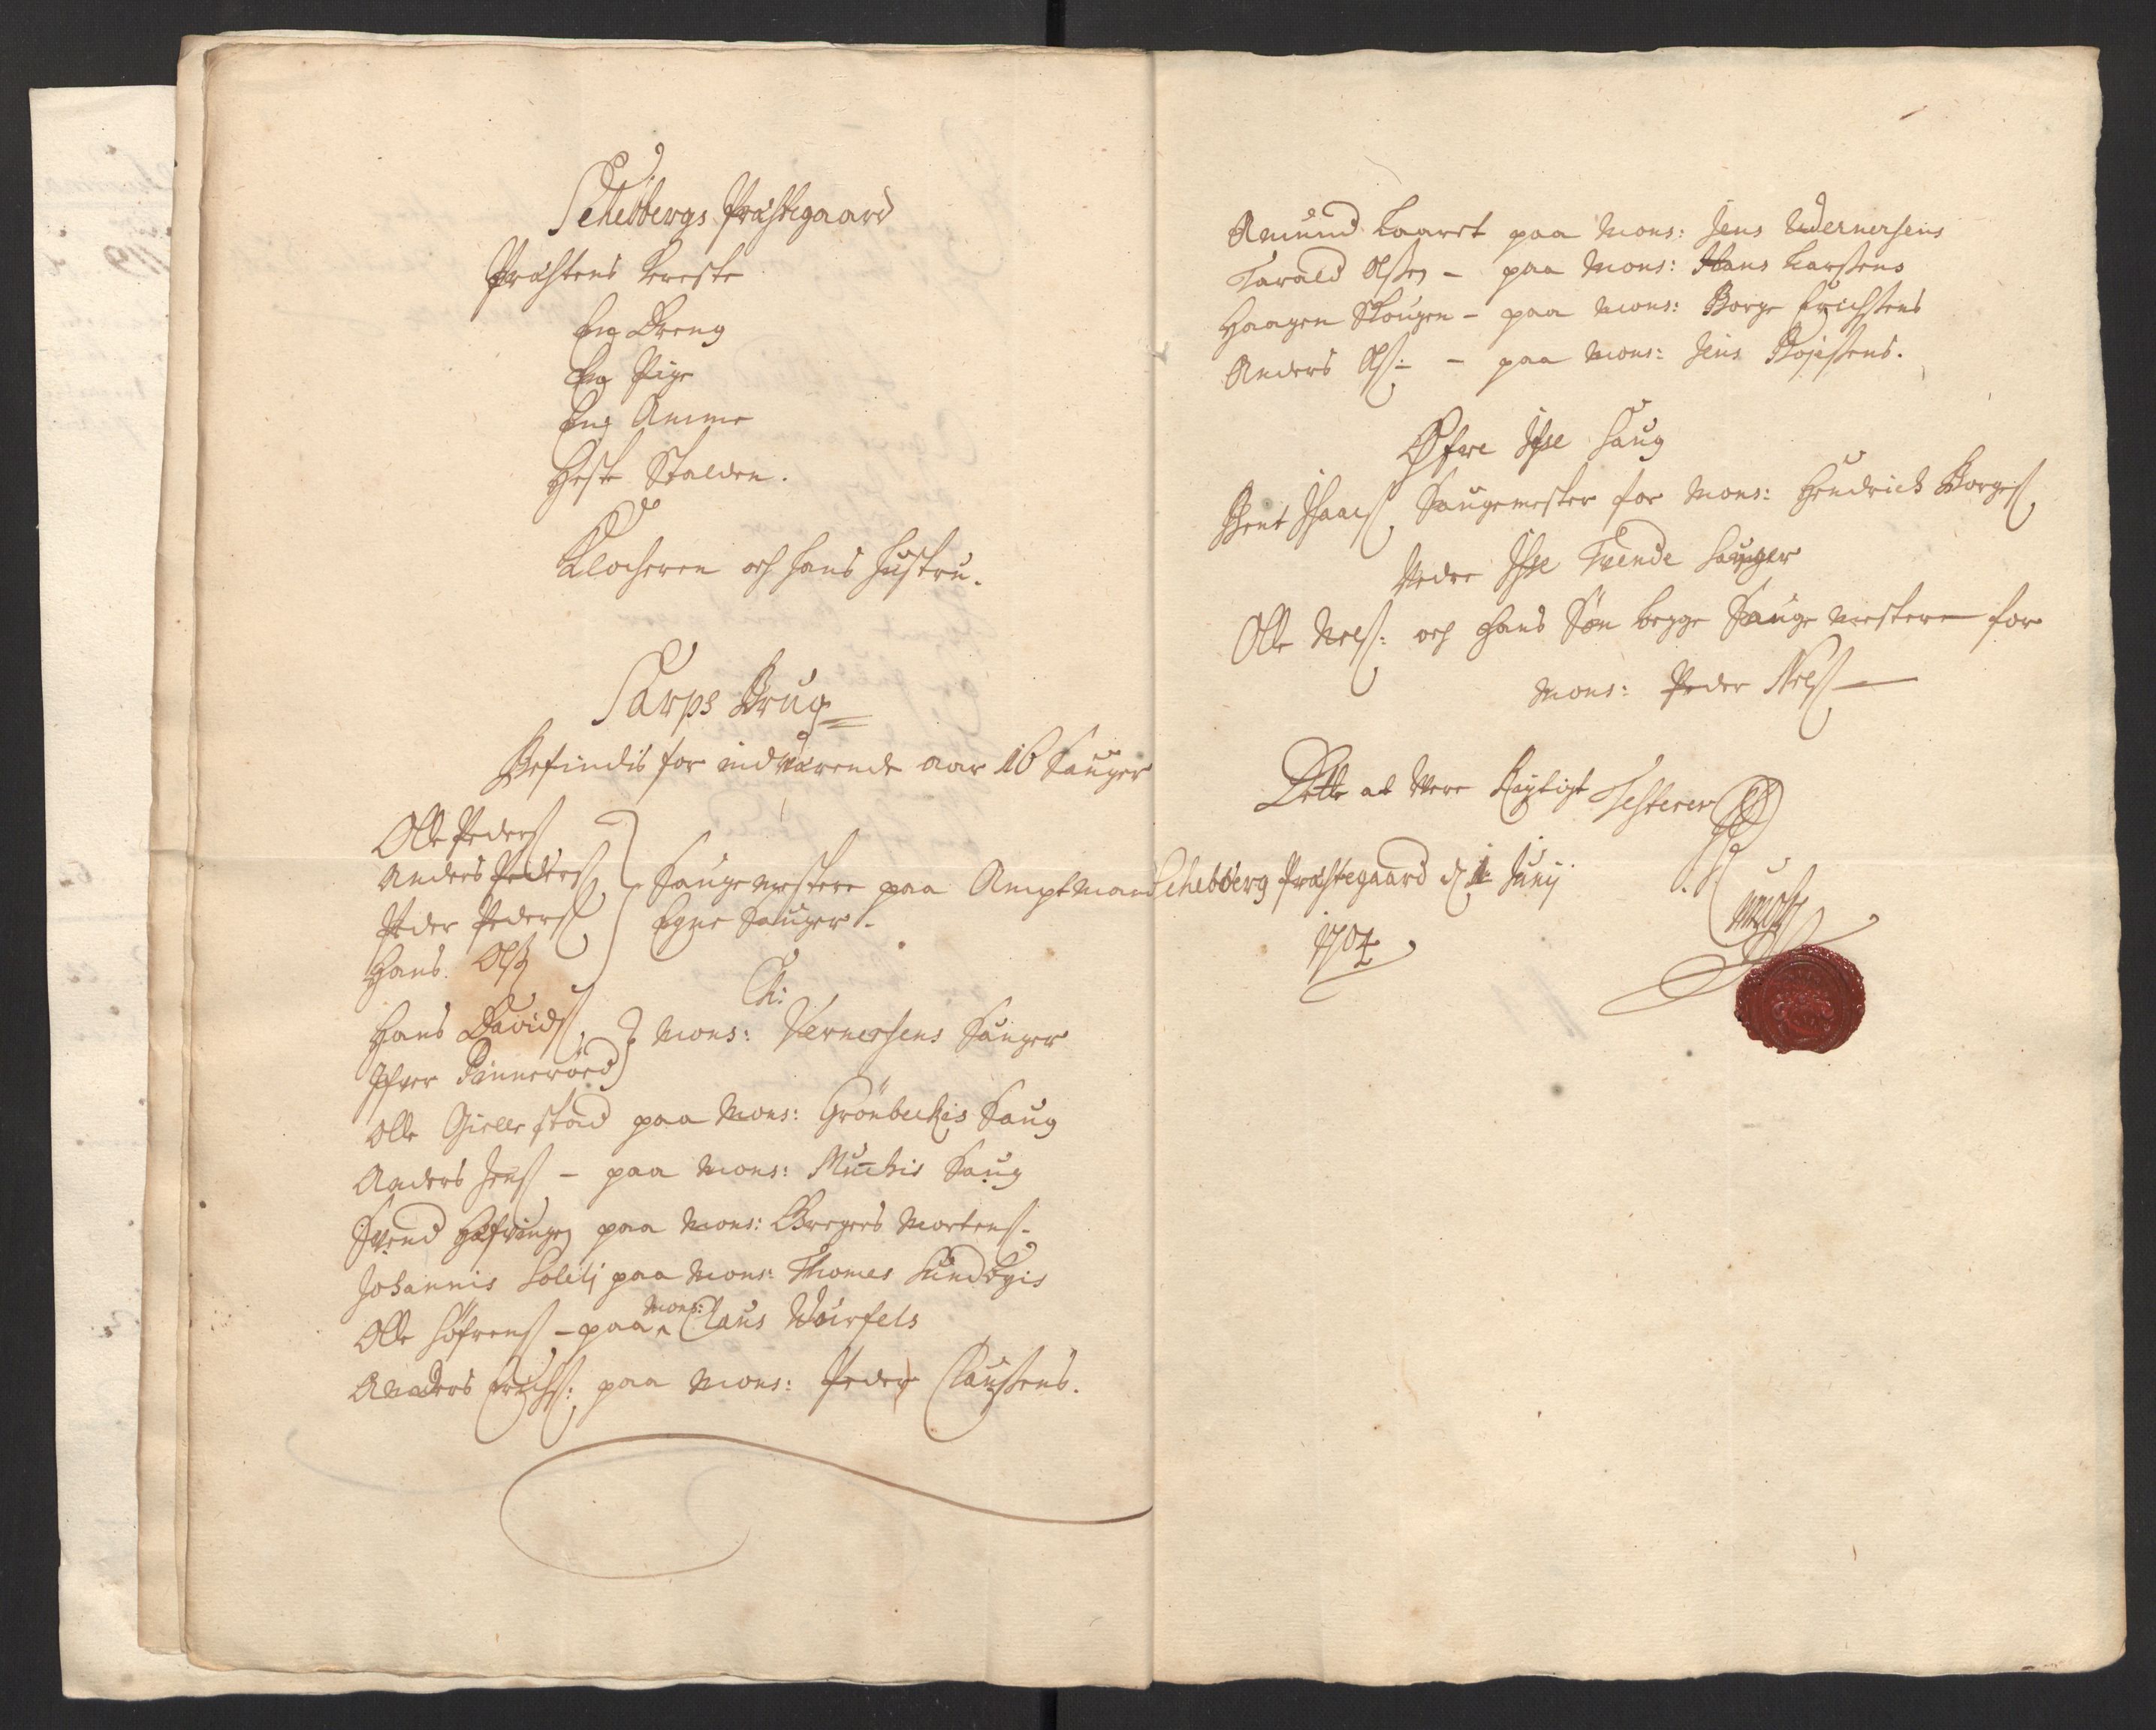 Schebbergs Præstegaard
Præstens Kereste
Een Dreng
Een Pige
Een Amme
Heste Stalden.
Klocheren och hans Hustru.
Sarps Brug
Befindis for indværende aar 16 Sauger
Olle Peders
Anders Peders
Peder Peders
Hans Olss
Saugemestere paa Amptmand
Egne Sauger.
Hans Davids
Ifver Tinnerøed
Mons: Vernersens Sauger
Olle Giellestad paa Mons: Grönbechis Saug
Anders Jens - paa Mons: Muchis Saug
Svend Hafvingen paa Mons: Gregers Mortens
Johannis Solli paa Mons: Thomes Lundbyis
Olle Söfrens - paa Mons: Claus Wurfels
Anders Erichs: paa Mons: Peder Claussens.
Amund Laaret paa Mons: Jens Wernersens
Tarald Olsen - paa Mons: Hans Larsens
Haagen Skougen - paa Mons: Borge Erichsens
Anders Ols: - paa Mons: Jens Bojesens.
Øfre Ise Saug
Bent Isaacs Saugemester for Mons: Hendrich Borges
Nedre Ise Tvende Sauger
Olle Nels: och Hans Søn begge Saugemestere for
Mons: Peder Nels
Dette at Vere Rigtigt Testerer
Schebberg Præstegaard d 1 Junij
1704